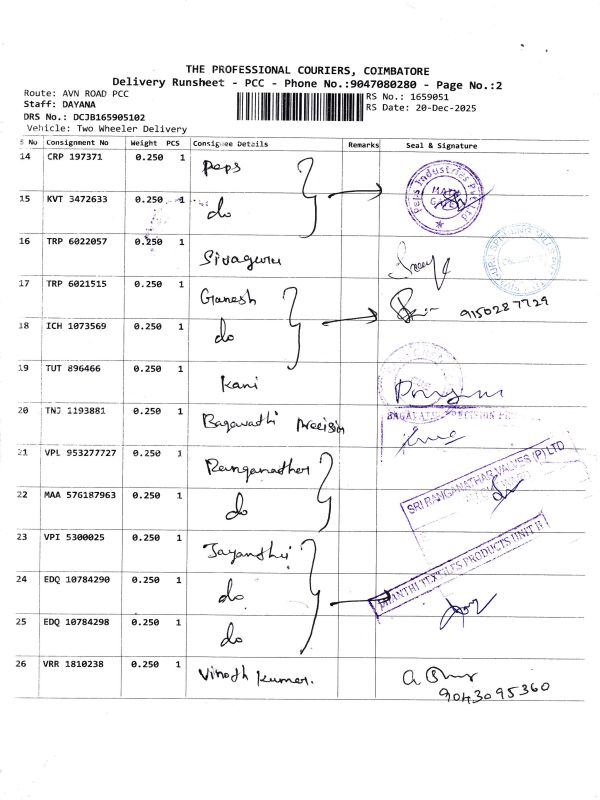 THE PROFESSIONAL COURIERS, COIMBATORE
Delivery Runsheet - PCC - Phone No.:9047080280 - Page No.:2
Route: AVN ROAD PCC
RS No: 1659051
Staff: DAYANA
RS Date: 20-Dec-2025
DRS No: DCJB165905102
Vehicle: Two Wheeler Delivery
S No Consignment No Weight PCS Consignee Details Remarks Seal & Signature
14 CRP 197371 0.250 1 Peps
Peps Industries Pvt Ltd
15 KVT 3472633 0.250 1 do
16 TRP 6022057 0.250 1 Sivaguru
17 TRP 6021515 0.250 1 Ganesh
9150287729
18 ICH 1073569 0.250 1 do
19 TUT 896466 0.250 1 Kani
20 TNJ 1193881 0.250 1 Bagavathi Precision
21 VPL 953277727 0.250 1 Ranganathar
SRI RANGANATHAR VALVES (P) LTD
22 MAA 576187963 0.250 1 do
23 VPI 5300025 0.250 1 Jayanthi
TEXTILES PRODUCTS UNIT II
24 EDQ 10784290 0.250 1 do
25 EDQ 10784298 0.250 1 do
26 VRR 1810238 0.250 1 Vinoth Kumar.
9043095360